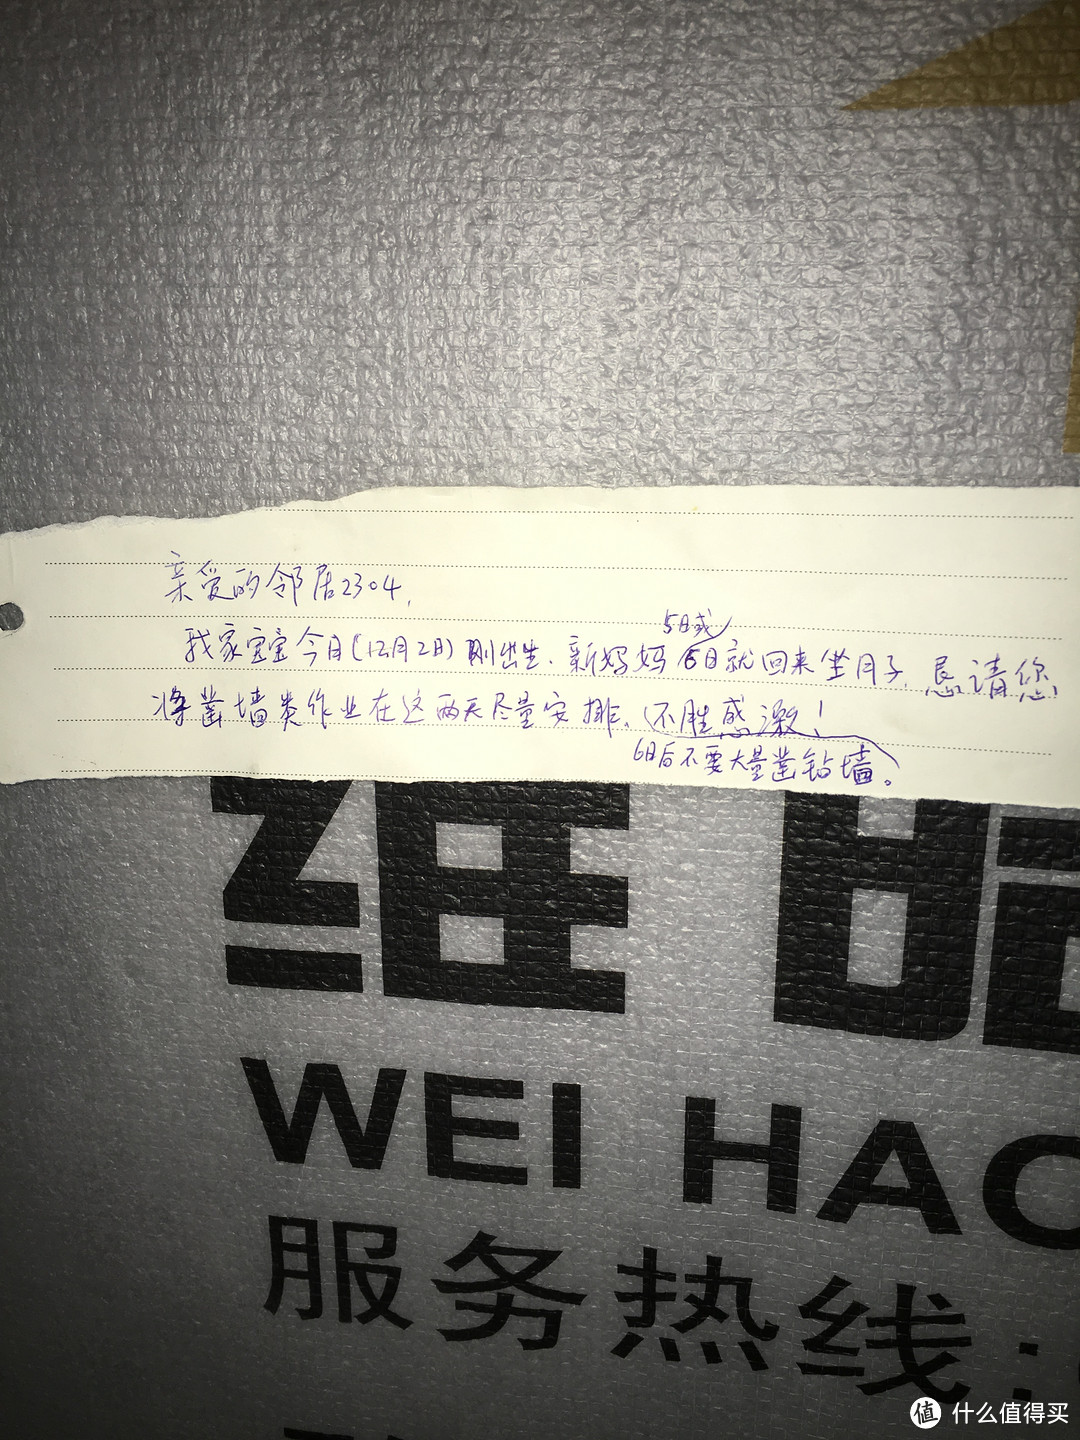 亲爱的邻居2304,
我家宝宝今日(12月2日)刚出生.新妈妈5日或6日就回来坐月子.恳请您
将凿墙类作业在这两天尽量安排、不胜感激!
6日后不要大量凿钻墙。
WEI HAO
服务热线:
值 什么值得买